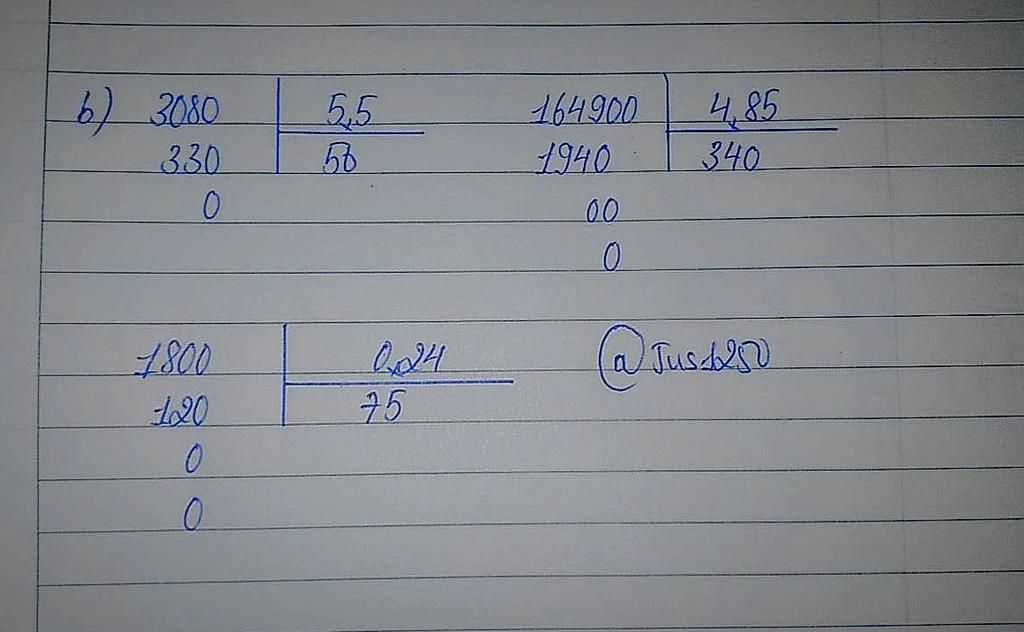 b) 3080 5,5 164900 4,85
330 56 1940 340
0 00
0
1800 0,24 @Jus1250
120 75
0
0